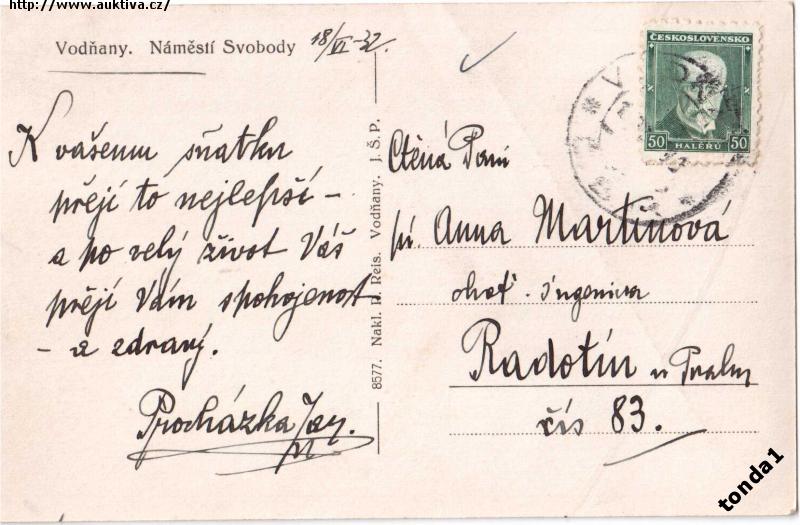 http://www.auktiva.cz/
Vodňany. Náměstí Svobody
18/VI-32.
K vašemu sňatku
přejí to nejlepší –
a po celý život Váš
přejí Vám spokojenost
– a zdraví.
Procházka
8577. Nakl. R. Reis. Vodňany. J.Š.P.
ČESKOSLOVENSKO
50 50
HALÉŘŮ
Ctěná Paní
pí. Anna Martinová
choť. Ingenieura
Radotín u Prahy
čís 83.
tonda1